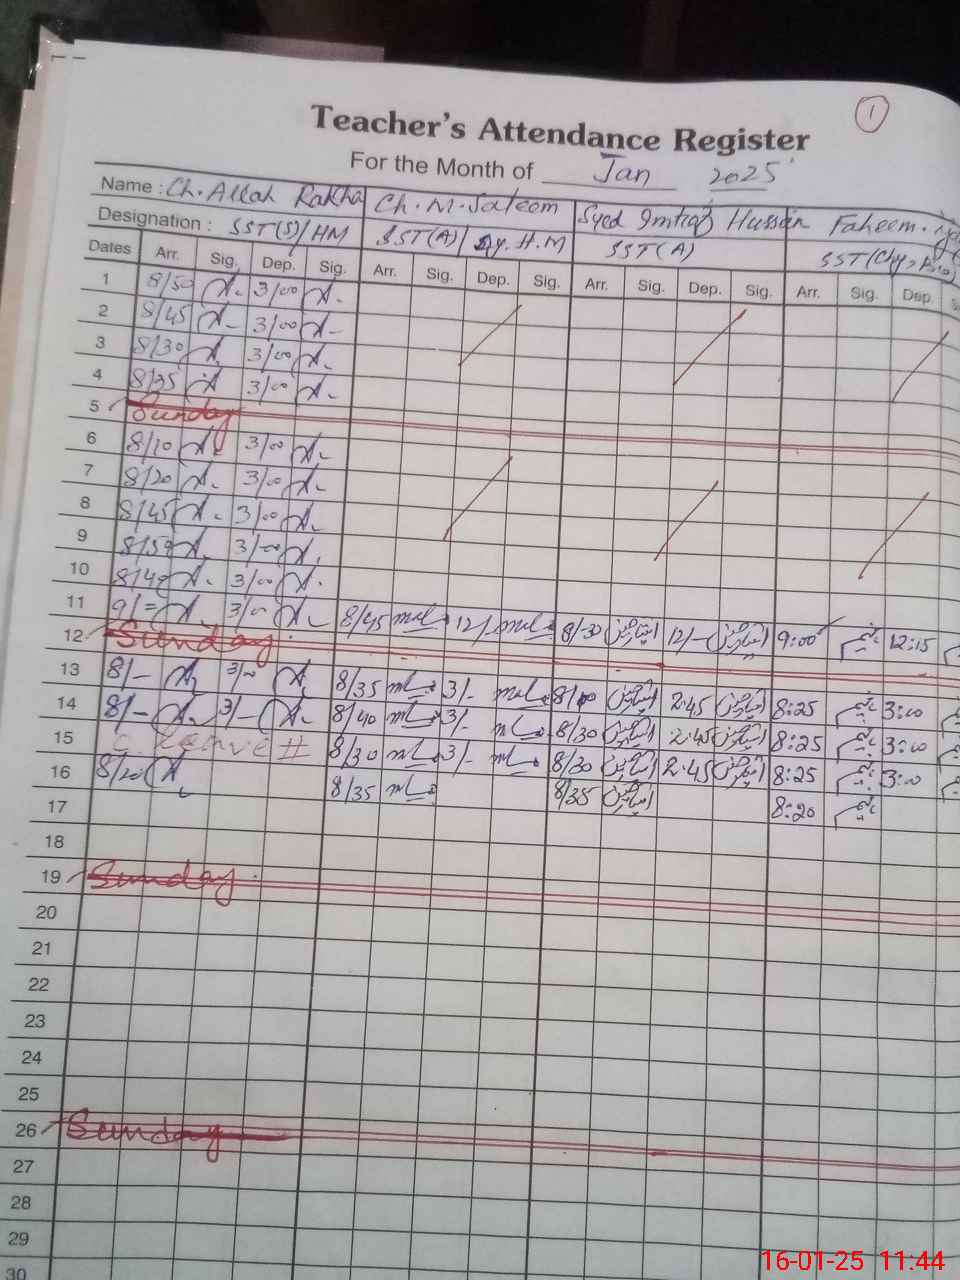 1
Teacher's Attendance Register
For the Month of Jan 2025
Name : Ch. Allah Rakha Ch. M. Saleem Syed Imtiaz Hussain Faheem
Designation : SST(S)/HM SST(A)/Dy. H.M SST(A)
Dates Arr. Sig. Dep. Sig. Arr. Sig. Dep. Sig. Arr. Sig. Dep. Sig. Arr. Sig. Dep.
1 8/50 3/00
2 8/45 3/00
3 8/30 3/00
4 8/35 3/00
5 Sunday
6 8/10 3/00
7 8/20 3/00
8 8/45 3/00
9 8/50 3/00
10 8/40 3/00
11 9/= 3/00 8/45 12/ 8/30 امتیاز حسین 12/- امتیاز حسین 9:00 12:15
12 Sunday
13 8/- 3/00 8/35 3/- امتیاز حسین 2.45 امتیاز حسین 8:25 3:00
14 8/- 3/- 8/40 3/- 8/30 امتیاز حسین 2.45 امتیاز حسین 8:25 3:00
15 C. leave 8/30 3/- 8/30 امتیاز حسین 2.45 امتیاز حسین 8:25 3:00
16 8/20 8/35 8/35 امتیاز حسین 8:20
17
18
19 Sunday
20
21
22
23
24
25
26 Sunday
27
28
29
30
16-01-25 11:44